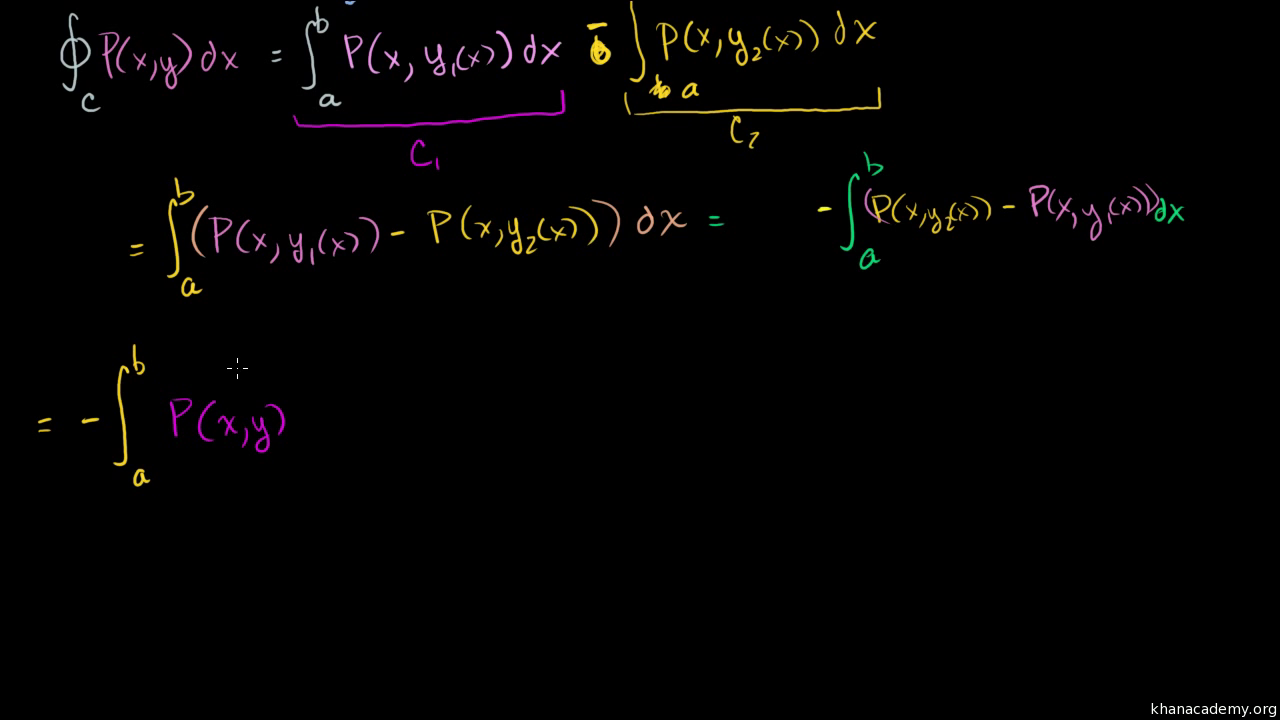 ∮_C P(x,y)dx = ∫_a^b P(x, y₁(x))dx - ∫_a P(x,y₂(x)) dx
C₁ C₂
= ∫_a^b (P(x, y₁(x)) - P(x,y₂(x))) dx = - ∫_a^b (P(x,y₂(x)) - P(x,y₁(x)))dx
= - ∫_a^b P(x,y)
khanacademy.org